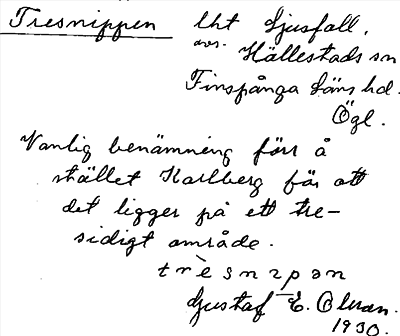 Tresnippen lht Ljusfall,
avs. Hällestads sn
Finspånga läns hd.
Ögl.
Vanlig benämning förr å
stället Karlberg för att
det ligger på ett tre-
sidigt område.
Gustaf E.
1930.